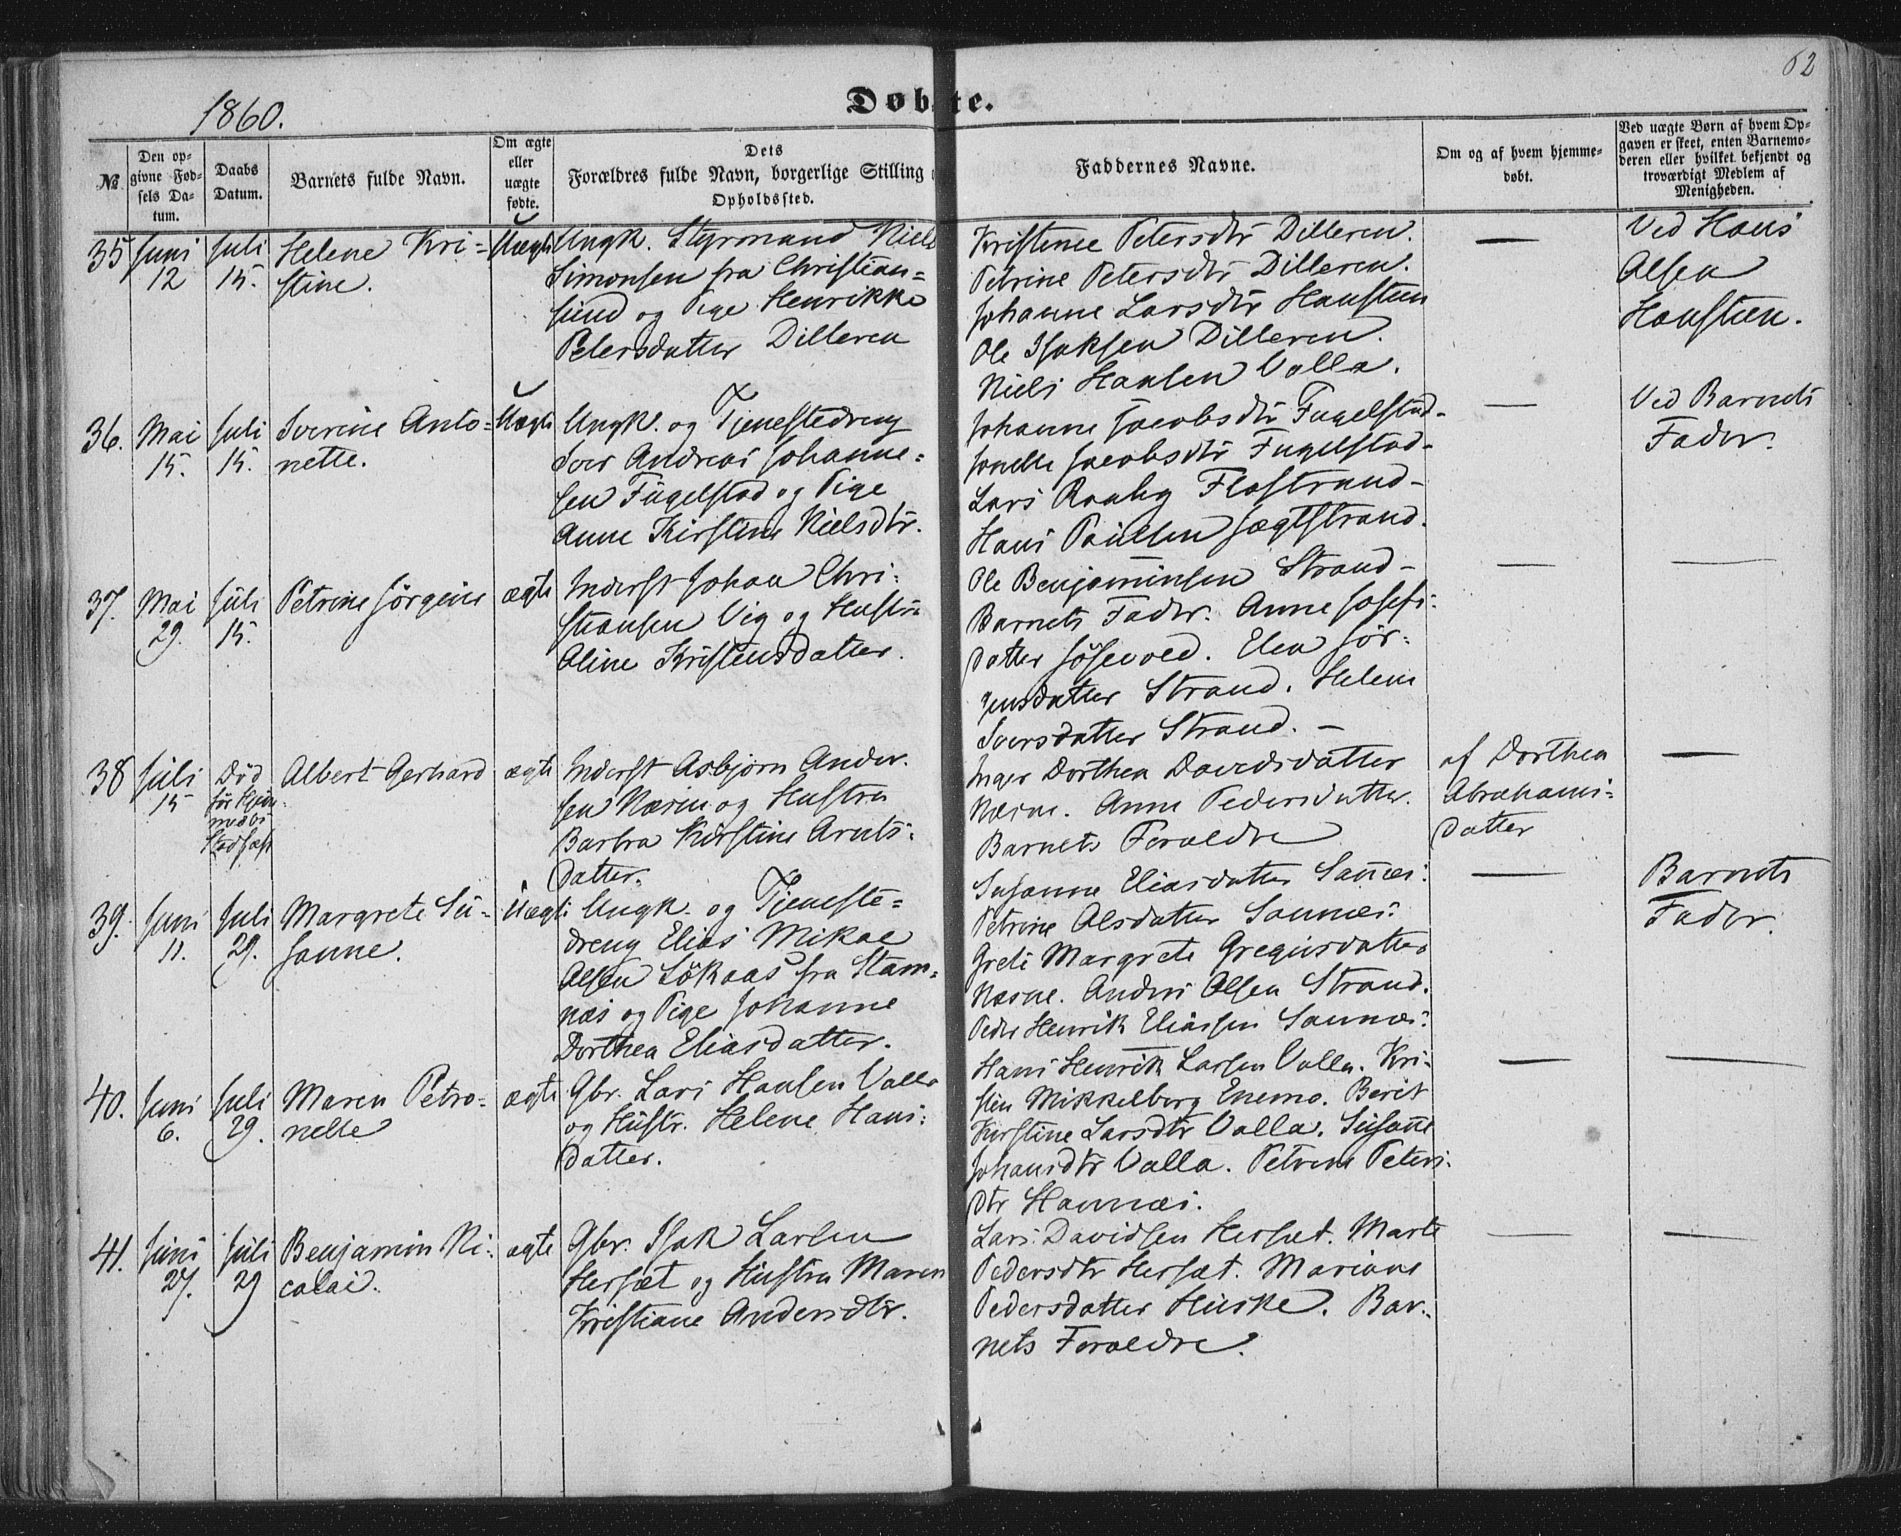 62
1860.
Døbte.
№
Den opgivne Fødsels Datum.
Daabs Datum.
Barnets fulde Navn.
Om ægte eller uægte fødte.
Dets Forældres fulde Navn, borgerlige Stilling
Opholdssted.
Faddernes Navne.
Om og af hvem hjemmedøbt.
Ved uægte Børn af hvem Opgaven er skeet, enten Barnemoderen eller hvilket bekjendt og troværdigt Medlem af Menigheden.
35 Juni 12 Juli 15. Helene Kri-
stine.
Uægte
Ungk. Styrmand Niels
Simonsen fra Christian-
sund og Pige Henrikke
Petersdatter Dilleren
Kristence Petersdtr Dilleren.
Petrine Petersdtr Dilleren.
Johanne Larsdtr Hansteen
Ole Isaksen Dilleren.
Niels Hansen Valla.
—
Ved Hans
Olsen
Hansteen.
36. Mai 15. Juli 15. Iverine Anto-
nette.
Uægte
Ungk. og Tjenestedreng
Iver Andreas Johanne-
sen Fugelstad og Pige
Anne Kirstine Nielsdtr.
Johanne Jacobsdtr Fugelstad-
Jonette Jacobsdtr Fugelstad-
Lars Flostrand-
Hans Paulsen Jægtstrand.
—
Ved Barnets
Fader.
37. Mai 29. Juli 15. Petrine Jørgine
ægte
Inderst Johan Chri-
stiansen Vig og Hustr.
Oline Kristensdatter.
Ole Benjaminsen Strand-
Barnets Fader. Anne Josefs-
datter Jøsevold. Elen Jør-
gensdatter Strand. Helene
Iversdatter Strand. —
—
—
38 Juli 15 Død
før Hjem-
Stadfæst
Albert Gerhard
ægte
Inderst Asbjørn Ander-
sen Næsne og Hustru
Barbra Kirstine Arnts-
datter.
Inger Dorthea Davidsdatter
Næsne. Anne Pedersdatter.
Barnets Foraldre
af Dorthea
Abrahams-
datter
—
39. Juni 11. Juli 29. Margrete Su-
sanne.
Uægte
Ungk. og Tjeneste-
dreng Elias Mikal
Olsen Løkaas fra Stam-
næs og Pige Johanne
Dorthea Eliasdatter.
Susanne Eliasdatter Sannæs.
Petrine Olsdatter Sannæs.
Grete Margrete Gregusdatter
Næsne. Anders Olsen Strand.
Peder Henrik Eliassen Sannæs.
—
Barnets
Fader.
40. Juni 6. Juli 29. Maren Petro-
nelle
ægte
Gbr. Lars Hansen Valla
og Hustr. Helene Hans-
datter.
Hans Henrik Larsen Valla. Kri-
sten Mikkelborg Enemo. Berit
Kirstine Larsdtr Valla. Susanne
Johansdtr Valla. Petrine Peters-
dtr Hannæs.
—
—
41. Juni 27. Juli 29 Benjamin Ni-
colai.
ægte
Gbr. Isak Larsen
Hersæt og Hustru Maren
Kristiane Andersdtr.
Lars Davidsen Hersæt. Marte
Pedersdtr Hersæt. Mariane
Pedersdatter Huske. Bar-
nets Foraldre.
—
—